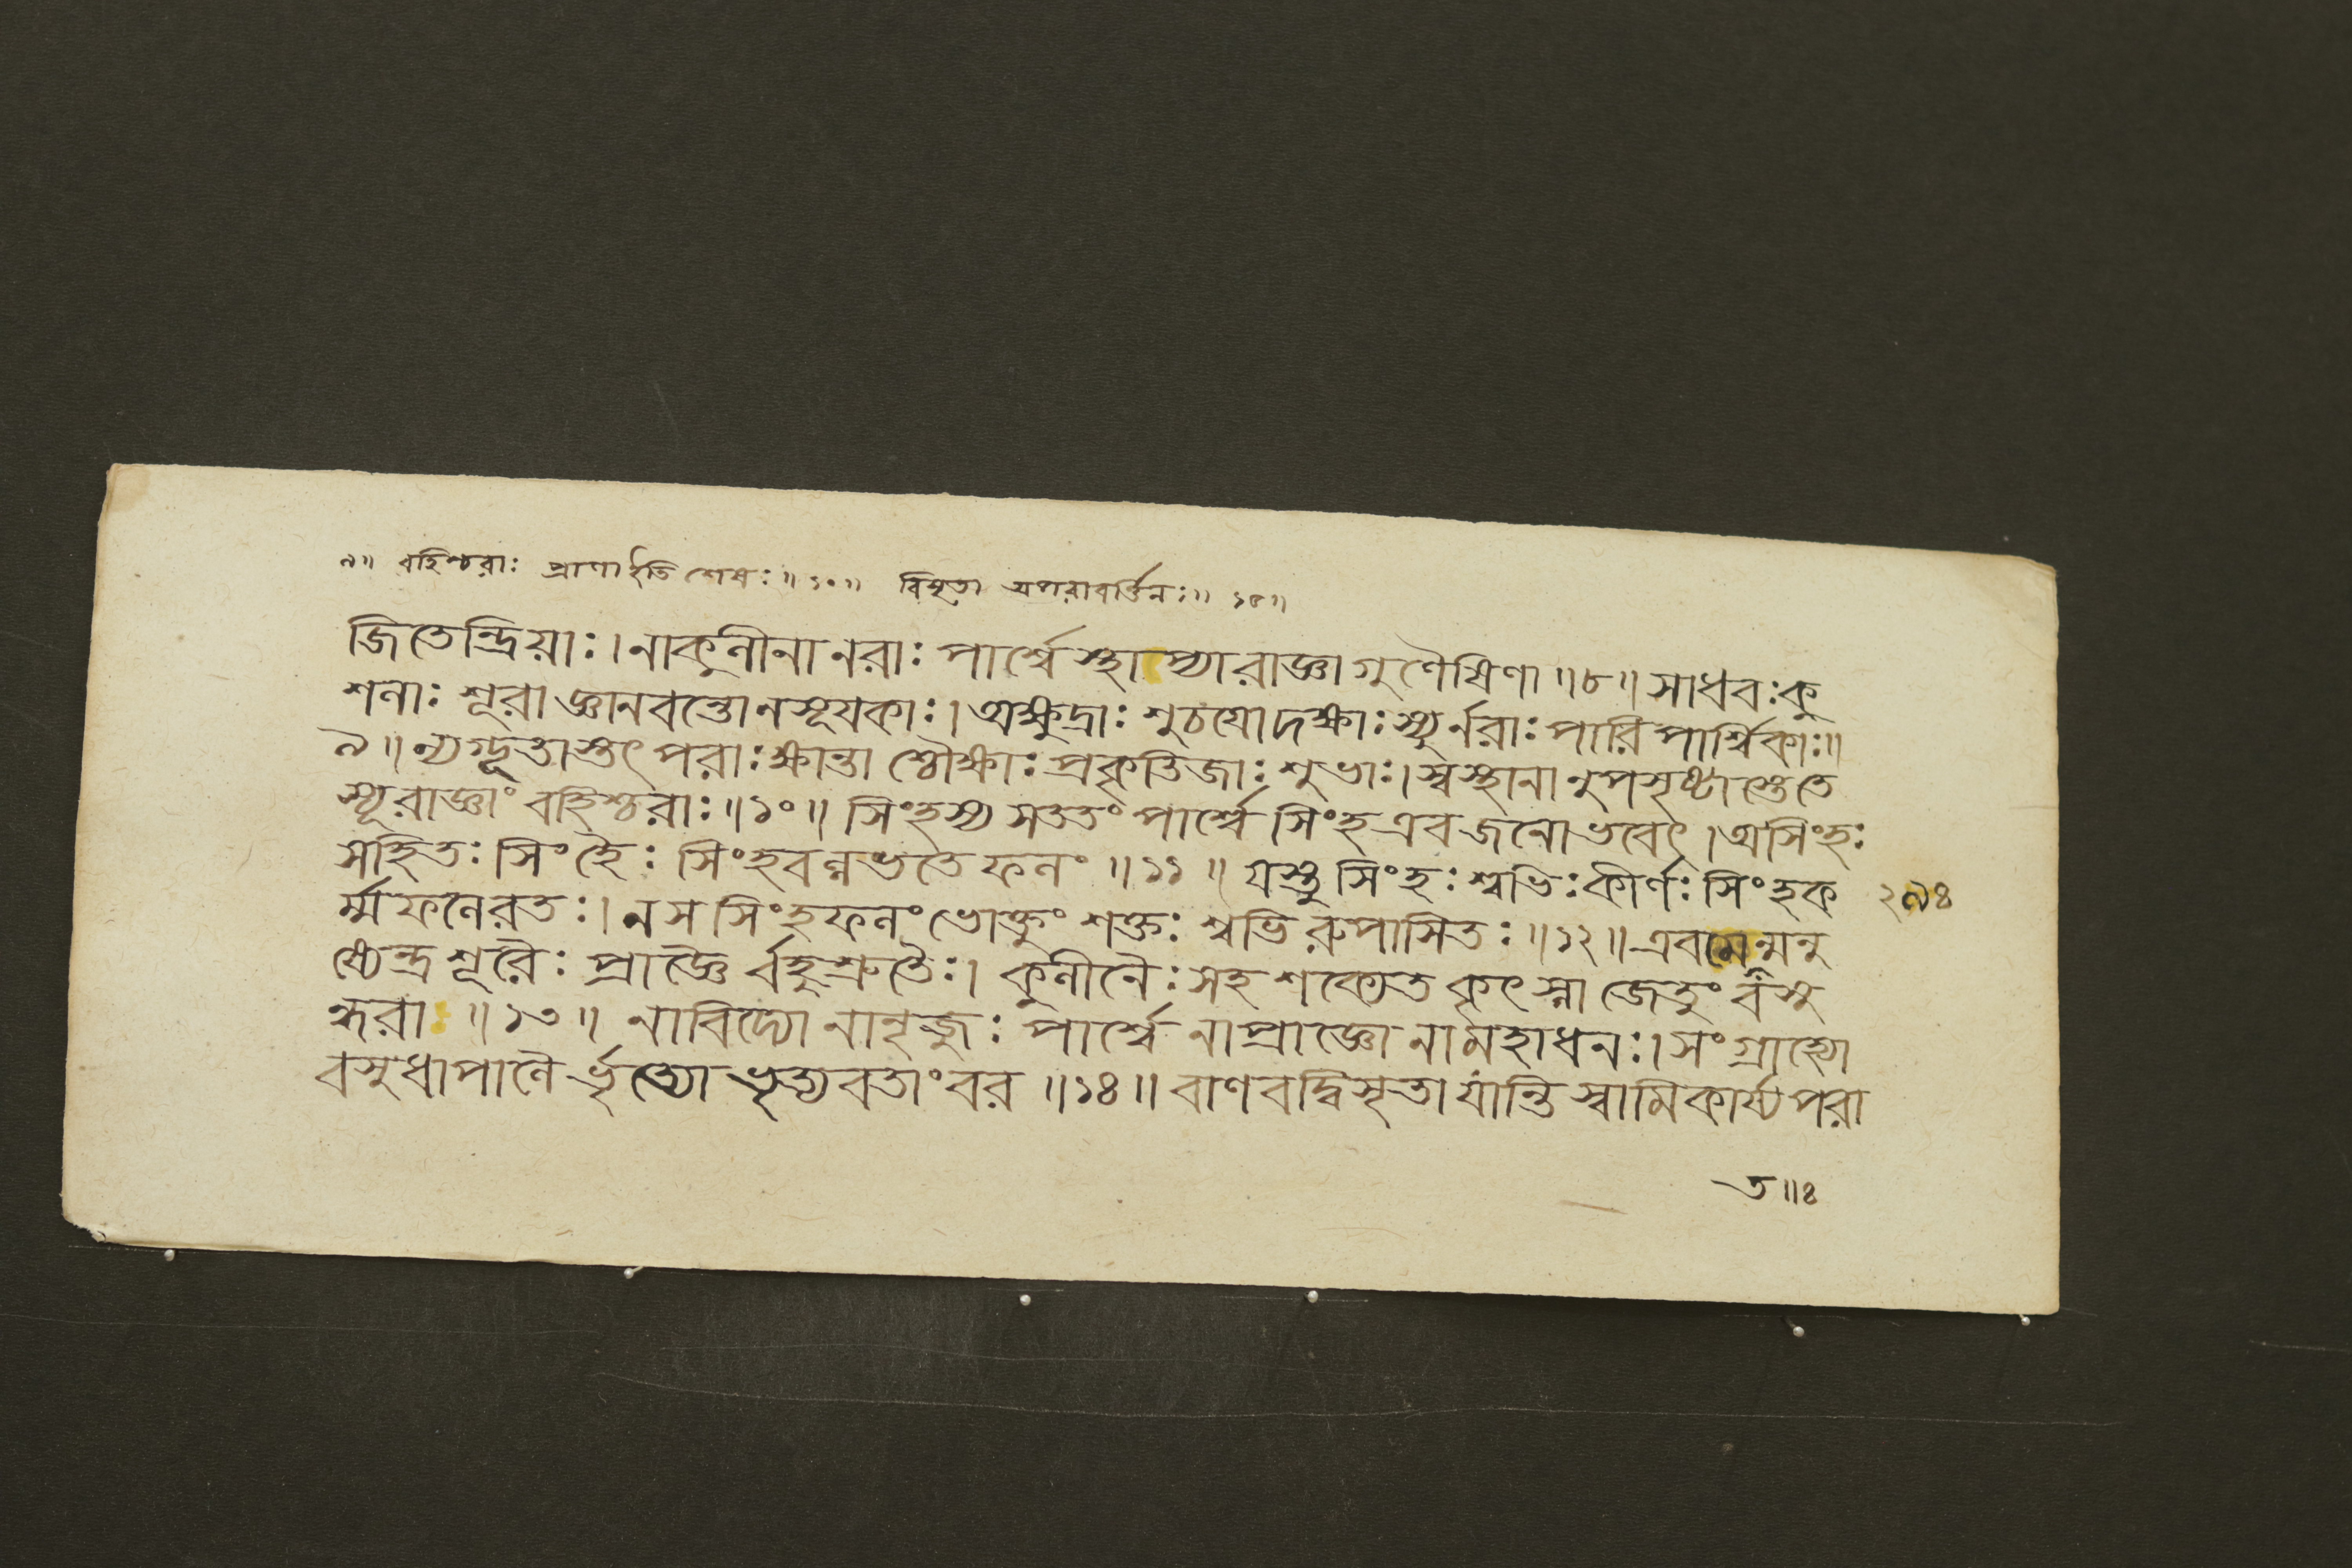 ৯॥ বহিশ্চরাঃ প্রাণা ইতি শেষঃ॥১০॥ বিসৃতা অপরাবর্ত্তিনঃ॥ ১৫॥
জিতেন্দ্রিয়াঃ।নাকুলীনানরাঃ পার্শ্বে স্থাপ্যারাজ্ঞাগুণৈষিণা॥৮॥সাধবঃকু
শলাঃ শূরাজ্ঞানবন্তোনসূযকাঃ।অক্ষুদ্রাঃ শুচযোদক্ষাঃস্যুর্নরাঃপারিপার্শ্বিকাঃ॥
৯॥ন্যগ্ভূতাস্তৎপরাঃক্ষান্তাশ্চৌক্ষাঃপ্রকৃতিজাঃশুভাঃ।স্বস্থানানুপসৃষ্টাস্তেতে
স্যূরাজ্ঞাং বহিশ্চরাঃ॥১০॥ সিংহস্য সততং পার্শ্বে সিংহএবজনোভবেৎ।অসিংহঃ
সহিতঃ সিংহৈঃ সিংহবল্লভতেফলং ॥১১॥ যস্তুসিংহঃশ্বভিঃকীর্ণঃসিংহক ২৯৪
র্ম্মফলেরতঃ।নসসিংহফলংভোক্তুংশক্তঃ শ্বভিরুপাসিতঃ॥১২॥এবমেন্মনু
ষ্যেন্দ্রশূরৈঃ প্রাজ্ঞৈর্বহুশ্রুতৈঃ। কুলীনৈঃসহশক্যেতকৃৎস্নাজেতুংর্বসু
ন্ধরাঃ॥১৩॥ নাবিদ্যোনানৃজুঃ পার্শ্বেনাপ্রাজ্ঞোনামহাধনঃ।সংগ্রাহ্যো
বসুধাপালৈর্ভৃত্যোভৃত্যবতাংবর॥১৪॥বাণবদ্বিসৃতাযান্তিস্বামিকার্য্যপরা
ত॥৪